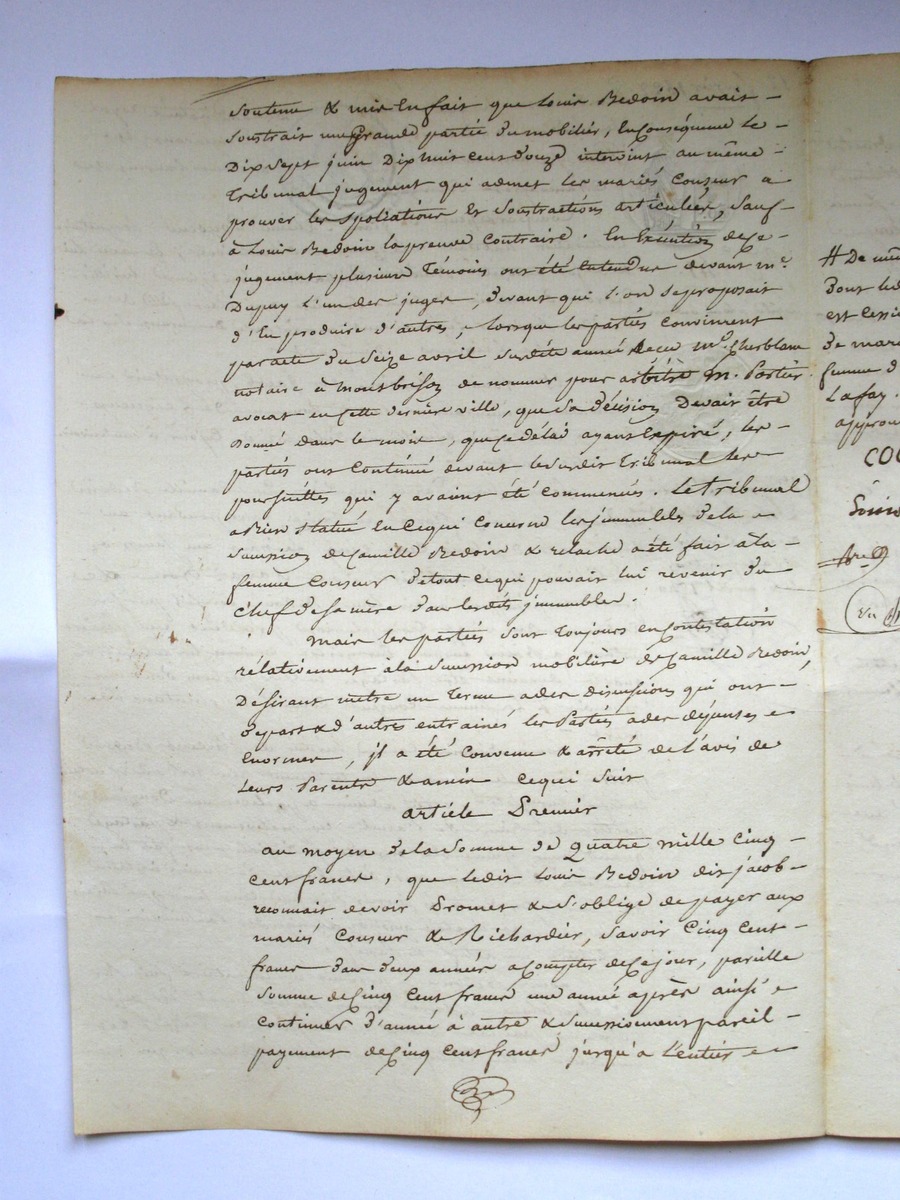 soutenu & mis en fait que Louis Bedoin avait -
soustrait une grande partie du mobilier, en conséquence le -
Dix sept juin Dix huit cent douze intervint au même -
Tribunal jugement qui admet les mariés Couzeur a
prouver les spoliations et soustractions articulées, sauf -
à Louis Bedoin la preuve contraire. En Exécution de ce -
jugement plusieurs témoins ont été entendus devant mr.
Dupuy l'un des juges, devant qui l'on se proposait
d'en produire d'autres, lorsque les parties convinrent
par acte du seize avril susdite année Recu Me. Cherblanc
notaire à Montbrison de nommer pour arbitre M. Portier
avocat en cette dernière ville, que sa décision devait être
donnée dans le mois, que ce délai ayant Expiré, les -
parties ont continué devant le susdit Tribunal les
poursuittes qui y avaient été commencées. Le tribunal
a Rien statué en ce qui concerne les jmmeubles de la
succession de Camille Bedoin & relache a été fait à la -
femme Couzeur de tout ce qui pouvait lui revenir du
chef de sa mère dans lesdits jmmeubles.
Mais les parties sont toujours en contestation
rélativement à la succession mobilière de Camille Bedoin,
Désirant metre un terme a des discussions qui ont -
de part & d'autres entrainés les Parties a des dépenses
Enormes, jl a été convenu & arrêté de l'avis de
Leurs Parents & amis ce qui suit
article Premier
au moyen de la somme de quatre mille cinq -
cent francs, que ledit Louis Bedoin dit jacob -
reconnait devoir Promet & s'oblige de payer aux
mariés Couzeur & Richardier, savoir cinq cent -
francs dans deux années a compter de ce jour, pareille
somme de cinq cent francs une année après ainsi
continuer d'année à autre & successivement pareil -
payement de cinq cent francs jusqu'a l'entier
# De mê
dont led
est cessi
de mari
femme d
Lafay.
approu